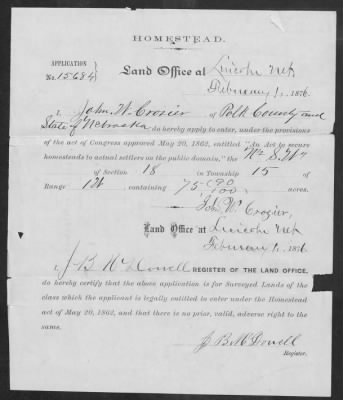 HOMESTEAD.
APPLICATION
No. 15684
Land Office at Lincoln Neb
February 1, 1876.
I, John W. Crozier of Polk County and
State of Nebraska do hereby apply to enter, under the provisions
of the act of Congress approved May 20, 1862, entitled "An Act to secure
homesteads to actual settlers on the public domain," the
of Section 18 in Township 15 of
Range containing 75 90/100 acres.
John W. Crozier,
Land Office at Lincoln Neb
February 1, 1876
I, J B McDowell REGISTER OF THE LAND OFFICE,
do hereby certify that the above application is for Surveyed Lands of the
class which the applicant is legally entitled to enter under the Homestead
act of May 20, 1862, and that there is no prior, valid, adverse right to the
same.
J B McDowell
Register.